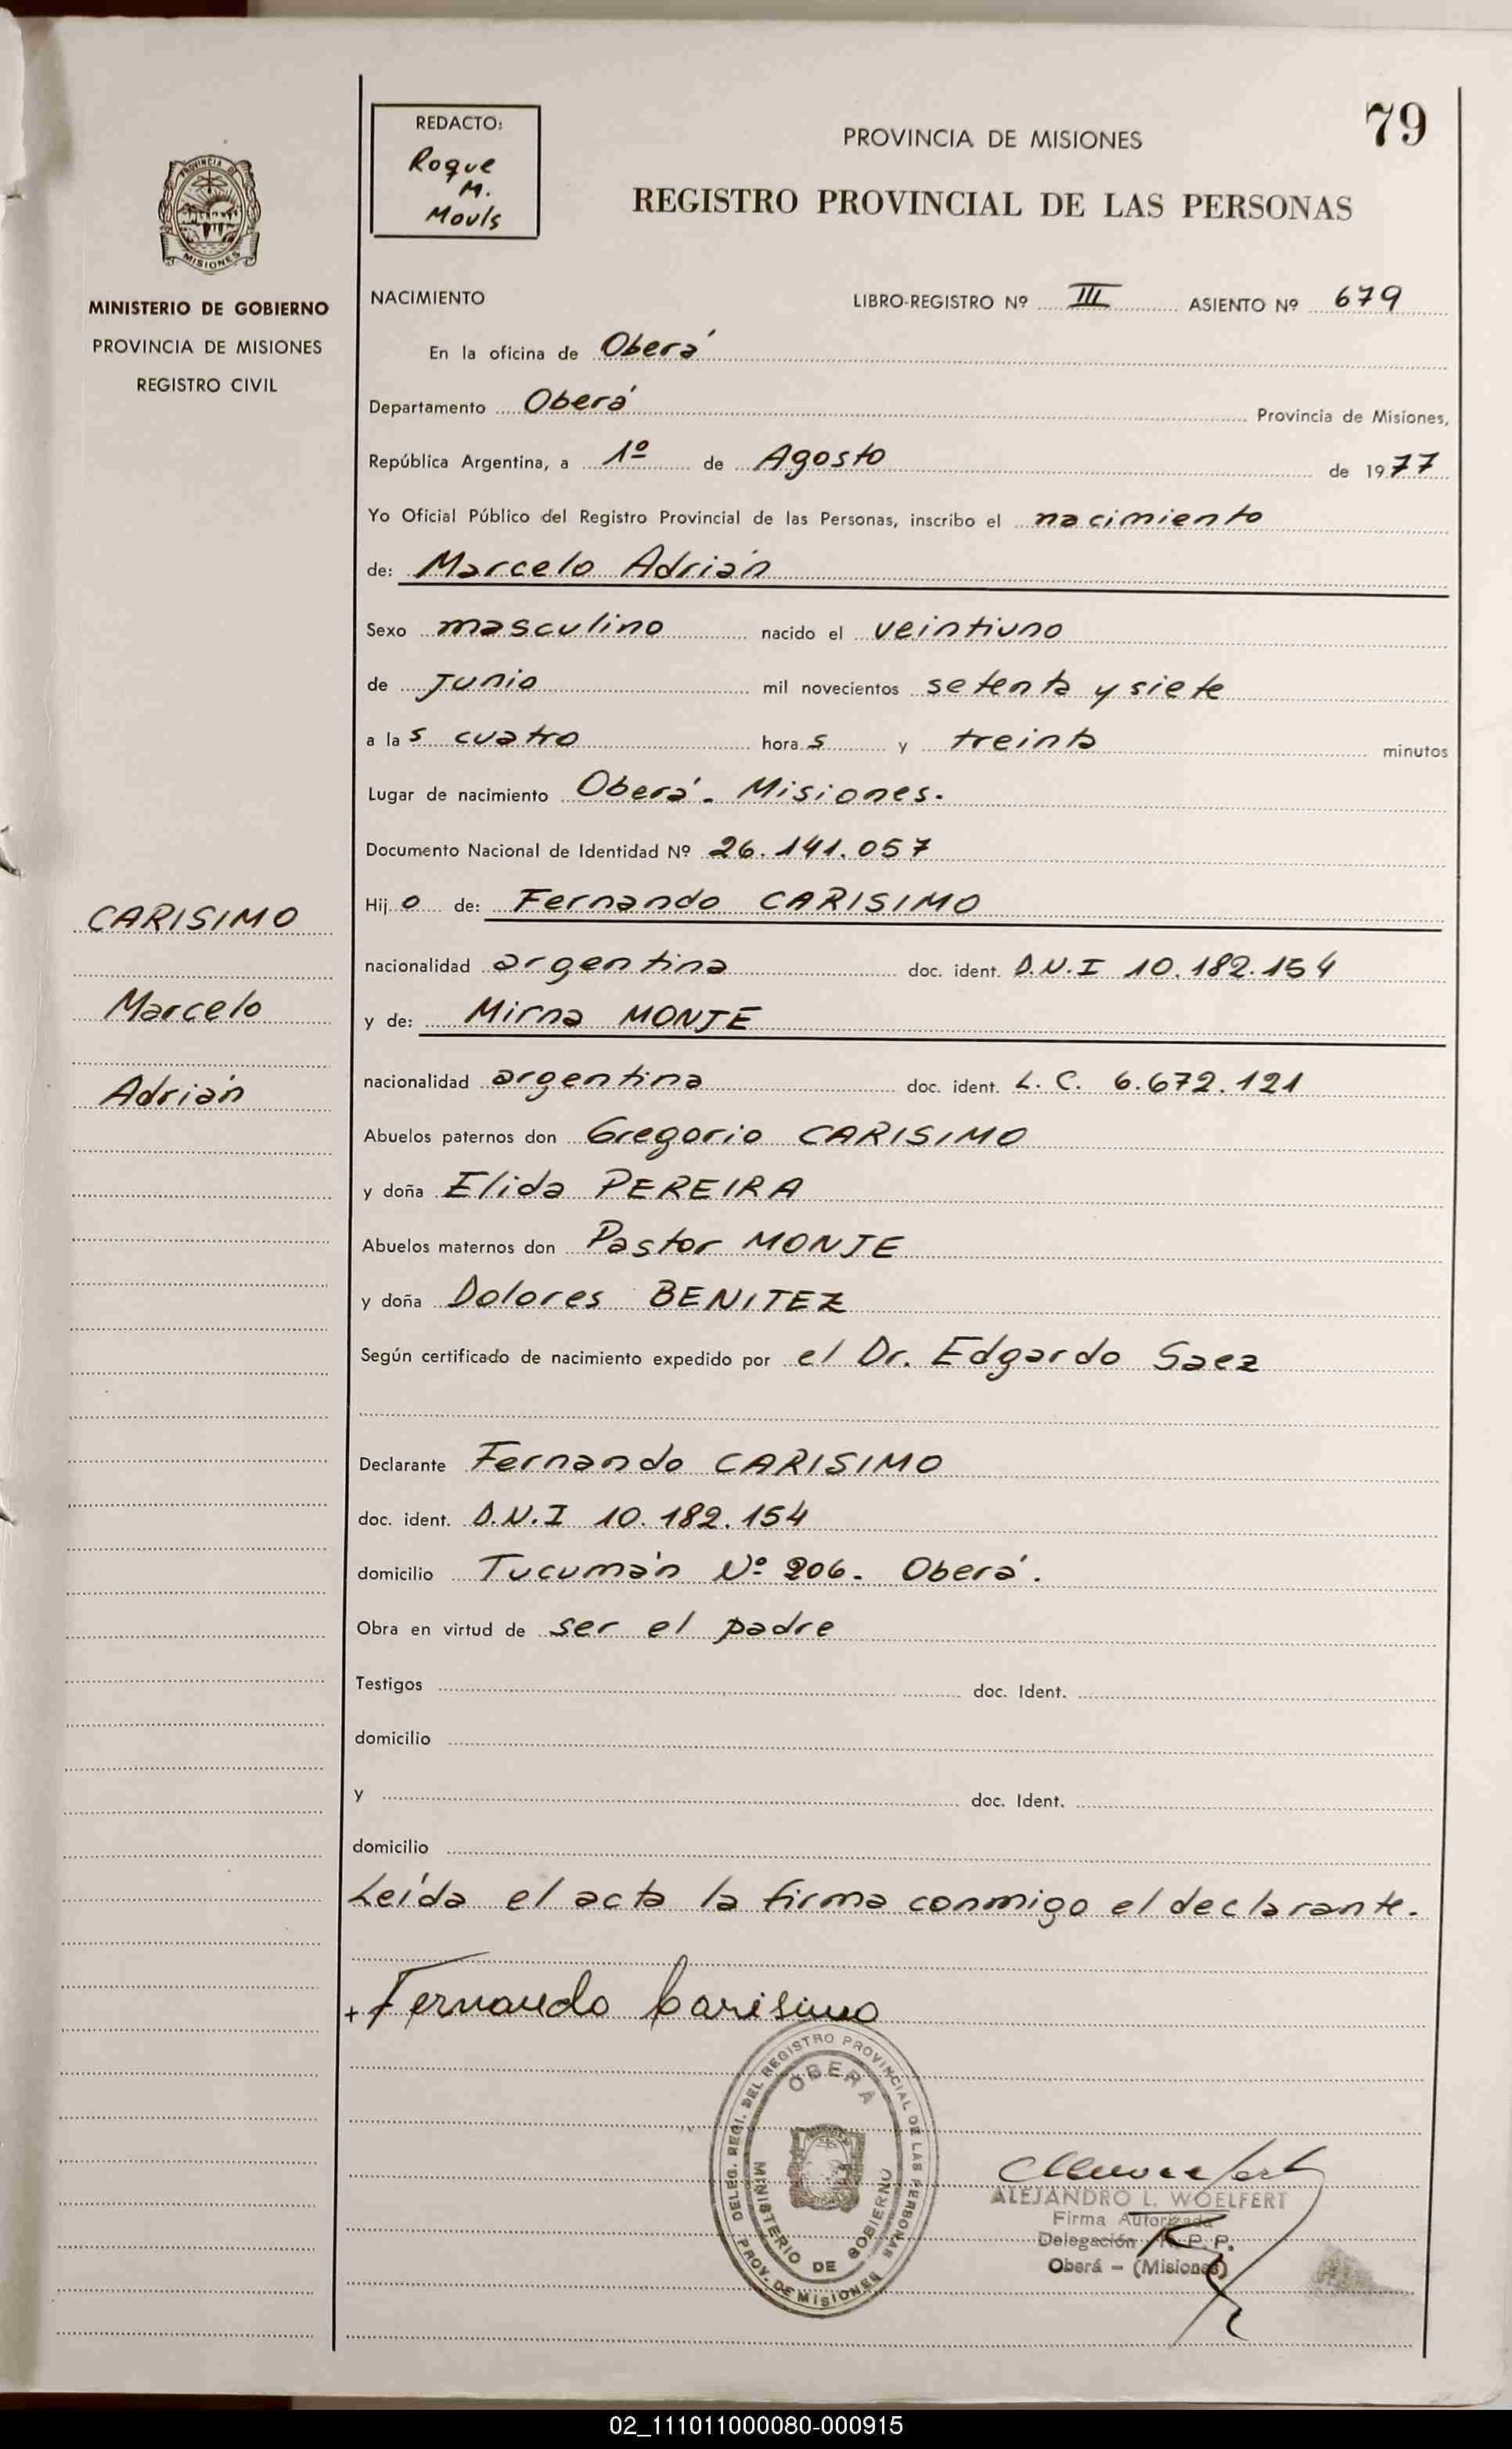 79
REDACTO:
Roque
M.
Mouls
PROVINCIA DE MISIONES
REGISTRO PROVINCIAL DE LAS PERSONAS
PROVINCIA DE
MISIONES
MINISTERIO DE GOBIERNO
PROVINCIA DE MISIONES
REGISTRO CIVIL
NACIMIENTO LIBRO-REGISTRO Nº III ASIENTO Nº 679
En la oficina de Oberá
Departamento Oberá Provincia de Misiones,
República Argentina, a 1º de Agosto de 1977
Yo Oficial Público del Registro Provincial de las Personas, inscribo el nacimiento
de: Marcelo Adrián
Sexo masculino nacido el veintiuno
de Junio mil novecientos setenta y siete
a las cuatro horas y treinta minutos
Lugar de nacimiento Oberá - Misiones.
Documento Nacional de Identidad Nº 26.141.057
CARISIMO
Marcelo
Adrián
Hijo de: Fernando CARISIMO
nacionalidad argentina doc. ident. D.N.I 10.182.154
y de: Mirna MONJE
nacionalidad argentina doc. ident. L. C. 6.672.121
Abuelos paternos don Gregorio CARISIMO
y doña Elida PEREIRA
Abuelos maternos don Pastor MONJE
y doña Dolores BENITEZ
Según certificado de nacimiento expedido por el Dr. Edgardo Saez
Declarante Fernando CARISIMO
doc. ident. D.N.I 10.182.154
domicilio Tucumán Nº 206. Oberá.
Obra en virtud de ser el padre
Testigos doc. Ident.
domicilio
y doc. Ident.
domicilio
Leída el acta la firma conmigo el declarante.
+ Fernando Carisimo
DELEG. REGI. DEL REGISTRO PROVINCIAL DE LAS PERSONAS
OBERÁ
MINISTERIO DE GOBIERNO
PROV. DE MISIONES
ALEJANDRO L. WOELFERT
Firma Autorizada
Delegación R. P. P.
Oberá - (Misiones)
02_111011000080-000915